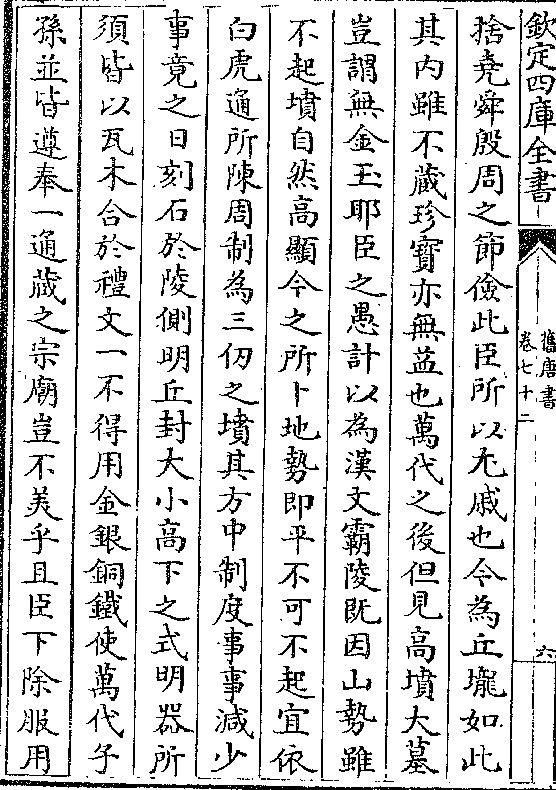 欽定四庫全書
舊唐書
卷七十二
六
捨堯舜殷周之節儉此臣所以尤戚也今為丘壠如此
其内雖不藏珍寶亦無益也萬代之後但見高墳大墓
豈謂無金玉耶臣之愚計以為漢文霸陵既因山勢雖
不起墳自然高顯今之所卜地勢即平不可不起宜依
白虎通所陳周制為三仞之墳其方中制度事事減少
事竟之日刻石於陵側明丘封大小高下之式明器所
須皆以瓦木合於禮文一不得用金銀銅鐵使萬代子
孫並皆遵奉一通藏之宗廟豈不美乎且臣下除服用